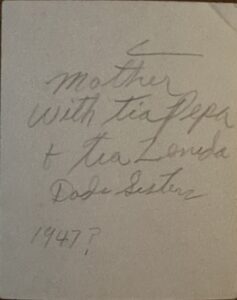 Mother
With tia Pepa
+ tia Lonida
Dads Sisters
1947?